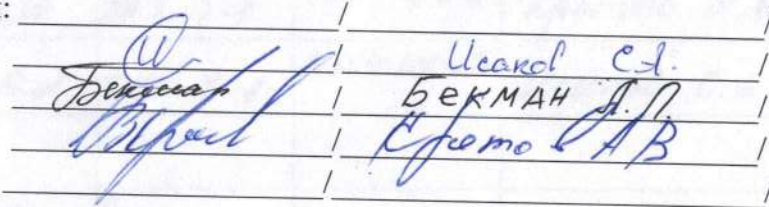 : / /
/ Исаков С.А. /
Бекман / Бекман А.П. /
/ Кротов А В /
/ /